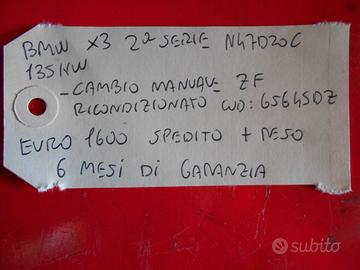 BMW X3 2ª SERIE N47D20C
135KW
- CAMBIO MANUALE ZF
RICONDIZIONATO COD: GS645DZ
EURO 1600 SPEDITO + RESO
6 MESI DI GARANZIA
subito